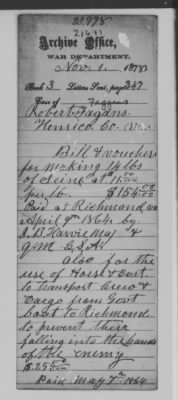 20,998
21691
Archive Office,
WAR DEPARTMENT,
Nov. 1. 1878
Book 3 Letters Sent, page 347
Case of Faggans
Robert Fagans.
Henrico Co. Va.
Bill & voucher
for making 14 lbs
of at 11.00
per lb. $154.00
Paid at Richmond, Va
April 9th 1864, by
J. B. Harvie Maj &
Q.M. C.S.A.
also for the
use of Horse & Cart
to transport Crew &
Cargo from Govt
boat to Richmond
to prevent their
falling into the hands
of the enemy
$25.00
Paid May 7th 1864